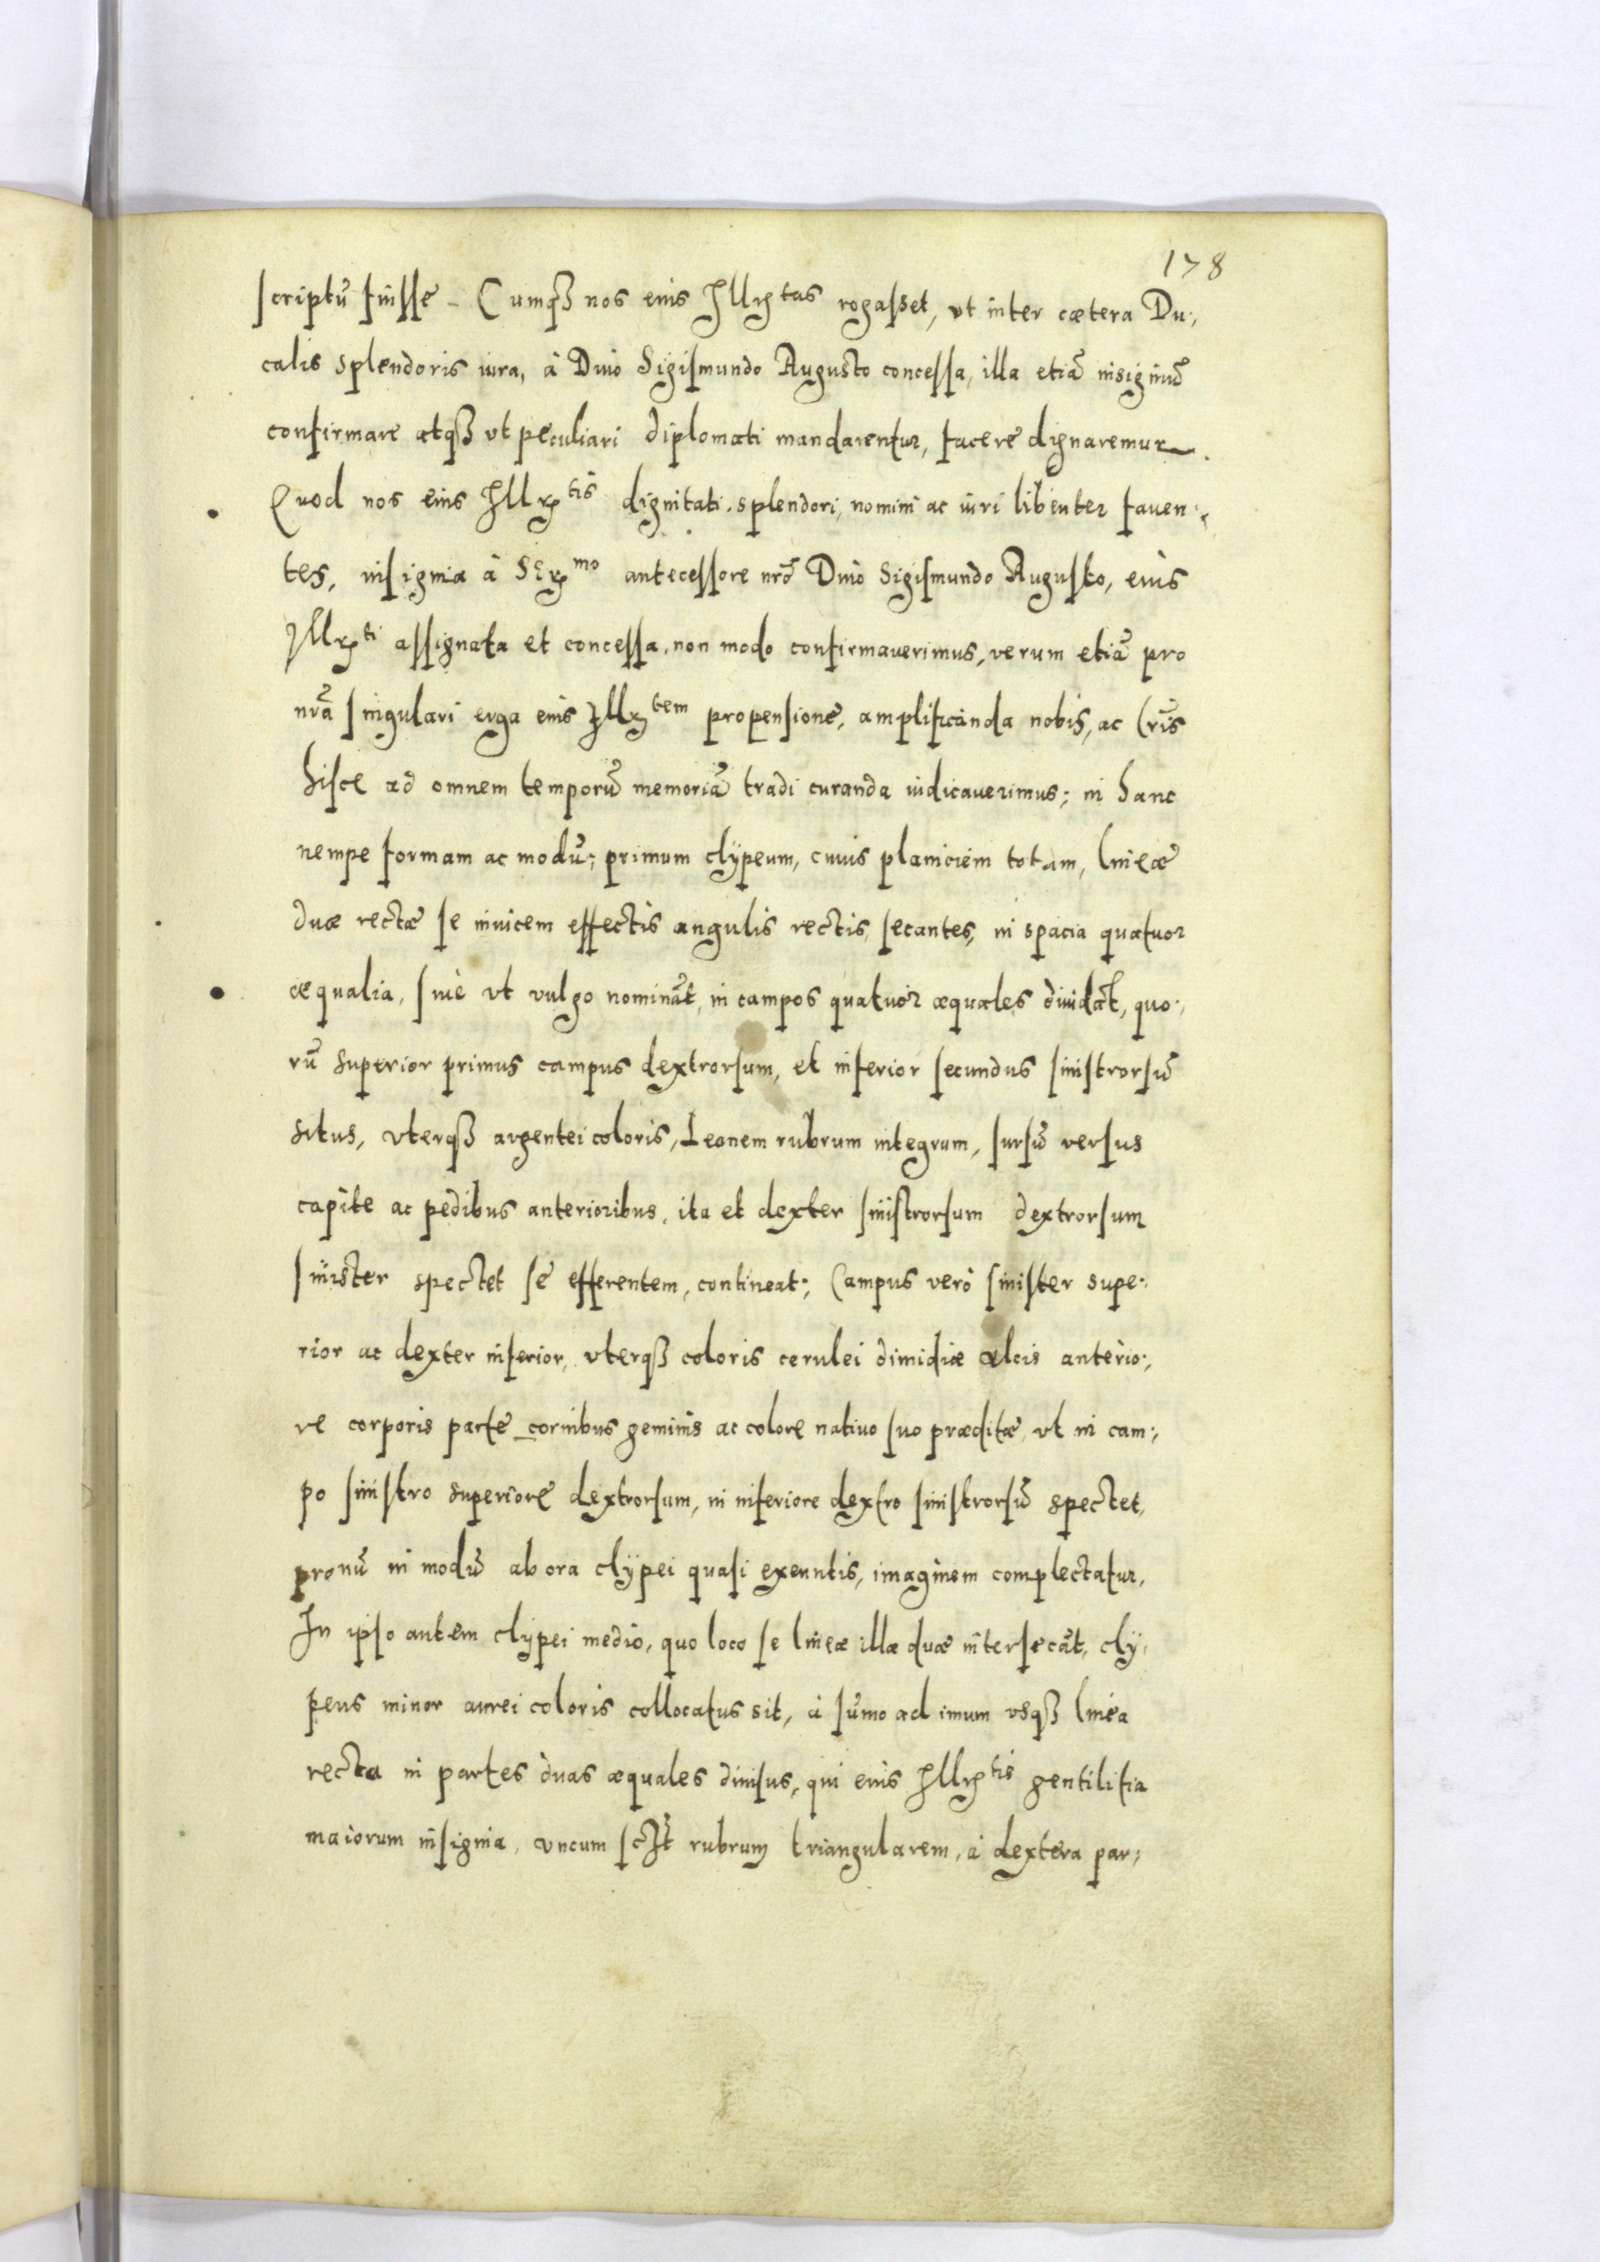 178
scriptũ fuisse – Cumqꝫ nos eius Illr̃tas rogasset, vt inter cætera Du:,
calis splendoris iura, à Diuo Sigismundo Augusto concessa, illa etiã insigniũ
confirmare atqꝫ vt peculiari diplomati mandarentur, facere dignaremur.
Quod nos eius Illr̃tis dignitati, splendori, nomini ac iuri libenter fauen:,
tes, insignia à Ser̃mo antecessore nr̃o Diuo Sigismundo Augusto, eius
Illr̃ti assignata et concessa, non modo confirmauerimus, verum etiã pro
nr̃a singulari erga eius Illr̃tem propensione, amplificanda nobis, ac lr̃is
hisce ad omnem temporũ memoriã tradi curanda iudicauerimus; in hanc
nempe formam ac modũ; primum clÿpeum, cuius planiciem totam, lineæ
duæ rectæ se inuicem effectis angulis rectis secantes, in spacia quatuor
æqualia, siue vt vulgo nominãt, in campos quatuor æquales diuidãt, quo:,
rũ superior primus campus dextrorsum, et inferior secundus sinistrorsũ
situs, vterqꝫ argentei coloris, Leonem rubrum integrum, sursũ versus
capite ac pedibus anterioribus, ita et dexter sinistrorsum dextrorsum
sinister spectet se efferentem, contineat; Campus verò sinister supe:
rior ac dexter inferior, vterqꝫ coloris cerulei dimidiæ alcis anterio:,
re corporis parte cornibus geminis ac colore natiuo suo præditæ, vt in cam:,
po sinistro superiore dextrorsum, in inferiore dextro sinistrorsũ spectet,
pronũ in modũ ab ora clÿpei quasi exeuntis, imaginem complectatur.
In ipso autem clÿpei medio, quo loco se lineæ illæ duæ intersecãt, clÿ:
peus minor aurei coloris collocatus sit, à sũmo ad imum vsqꝫ linea
recta in partes duas æquales diuisus, qui eius Illr̃tis gentilitia
maiorum insignia, vncum sclt̃ rubrum triangularem, à dextera par: